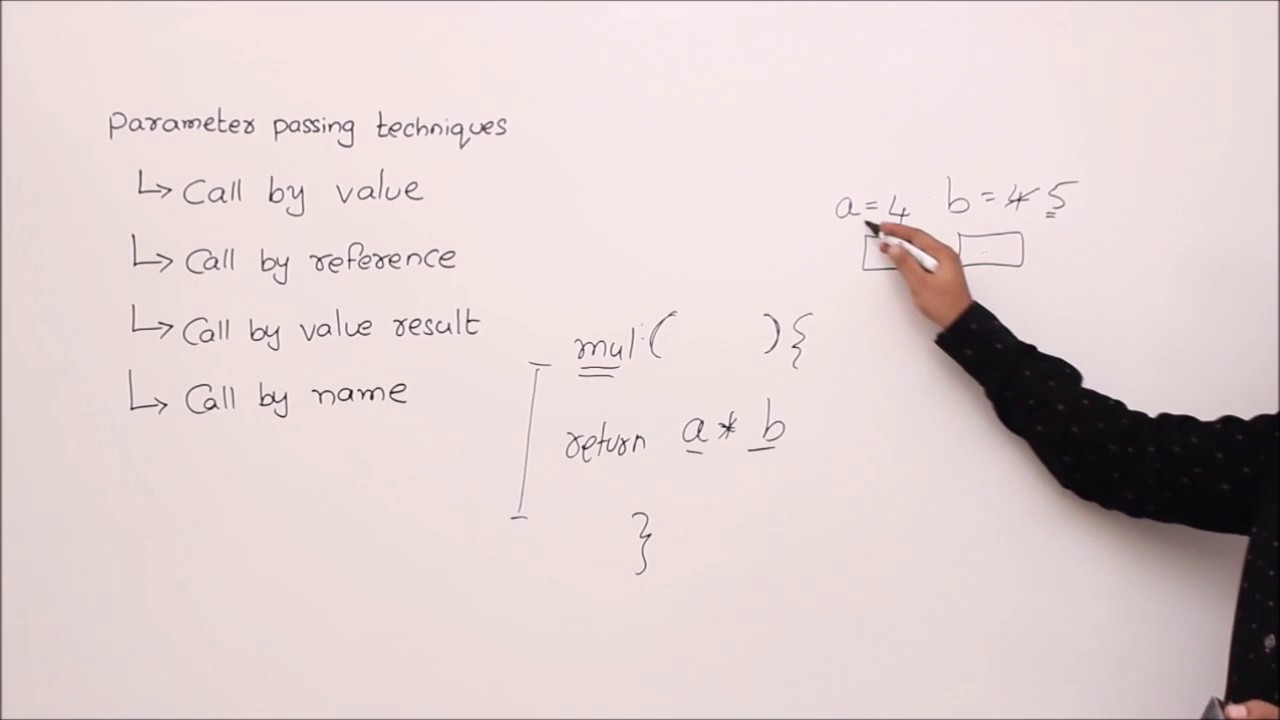 Parameter passing techniques
↳ Call by value
↳ Call by reference
↳ Call by value result
↳ Call by name
a = 4 b = 4 5
mul( ){
return a * b
}